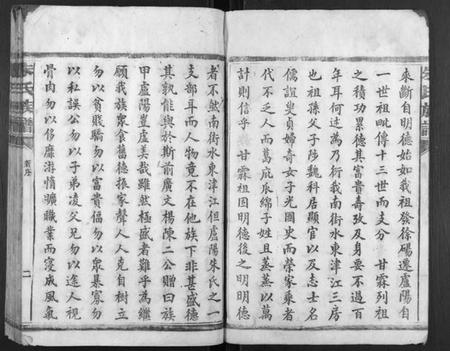 來斷自明德始如我祖發徐碭遷盧陽自
一世祖毗傳十三世而支分 甘霖列祖
之積功累德其富貴壽攷及身要不過百
年耳何過為乃衍我南街水東津江三房
也祖孫父子陟魏科居顯官以及志士名
儒誼叟貞婦奇女子光國史而榮家乘者
代不乏人而萬庇瓜綿子姓且蒸蒸以萬
計則信乎 甘霖祖因明德後之明明德
者不然南街水東津江但盧陽朱氏之一
支部耳而人物竟不在他族下非甚盛德
其孰能與於斯前廣文楊陳二公贈曰族
甲盧陽豈虛美哉雖然極盛者難乎為繼
願我族眾食舊德振家聲人人克自樹立
勿以貧賤驕勿以富貴傲勿以眾暴寡勿
以私誤公勿以子弟凌父兄勿以途人視
骨肉勿以侈靡游惰曠職業而寖成風氣
朱氏族譜
新序
二